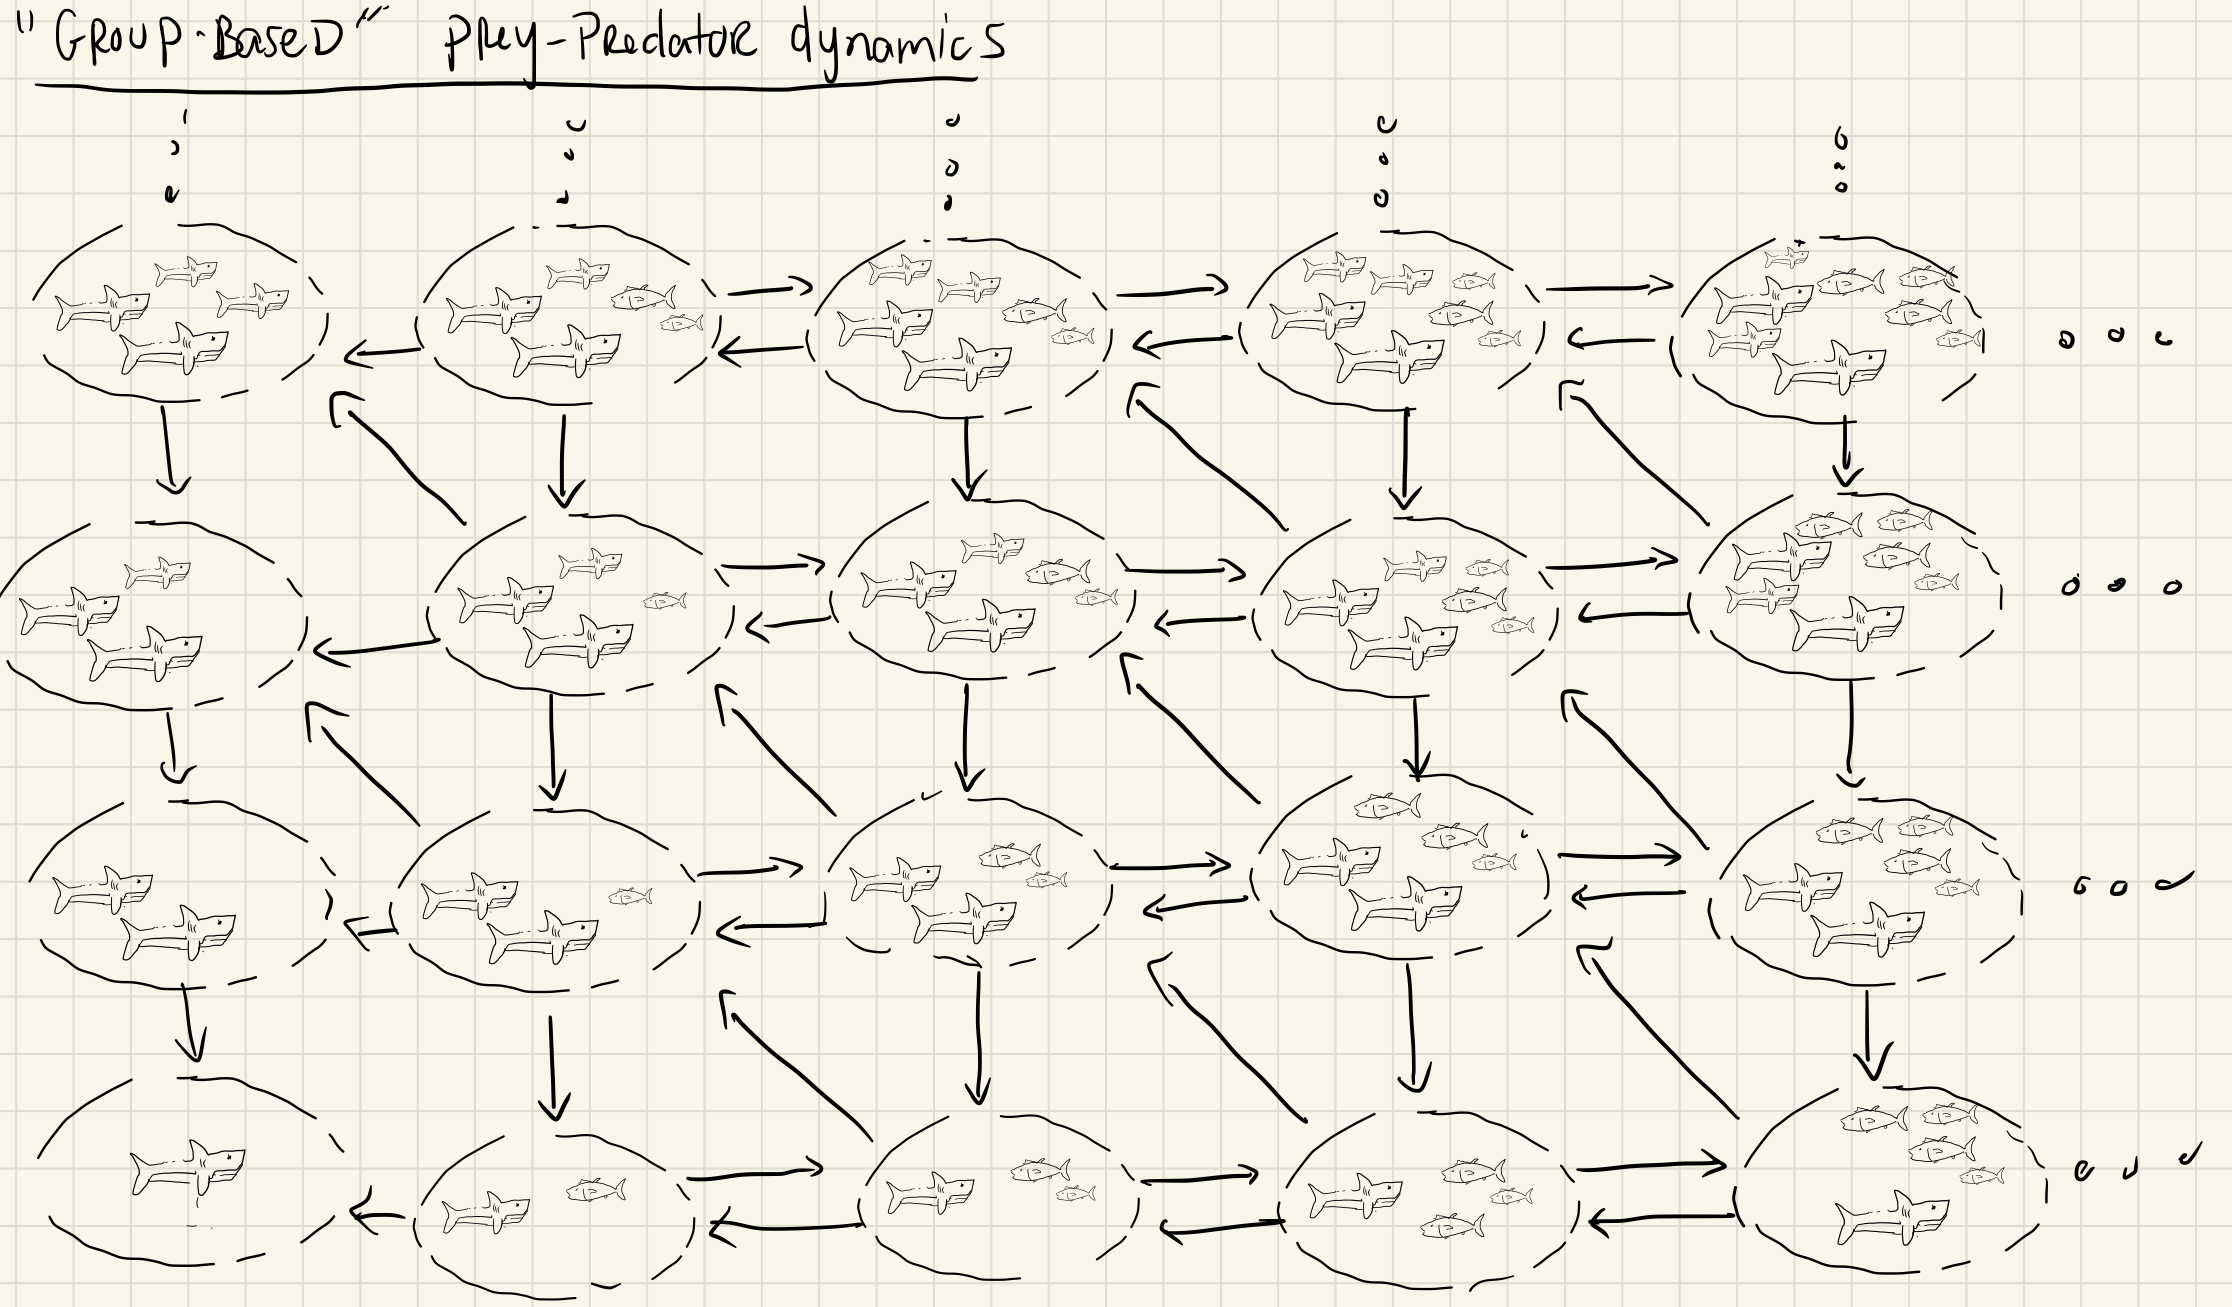 "GROUP-BASED" PREY-PREDATOR dynamics